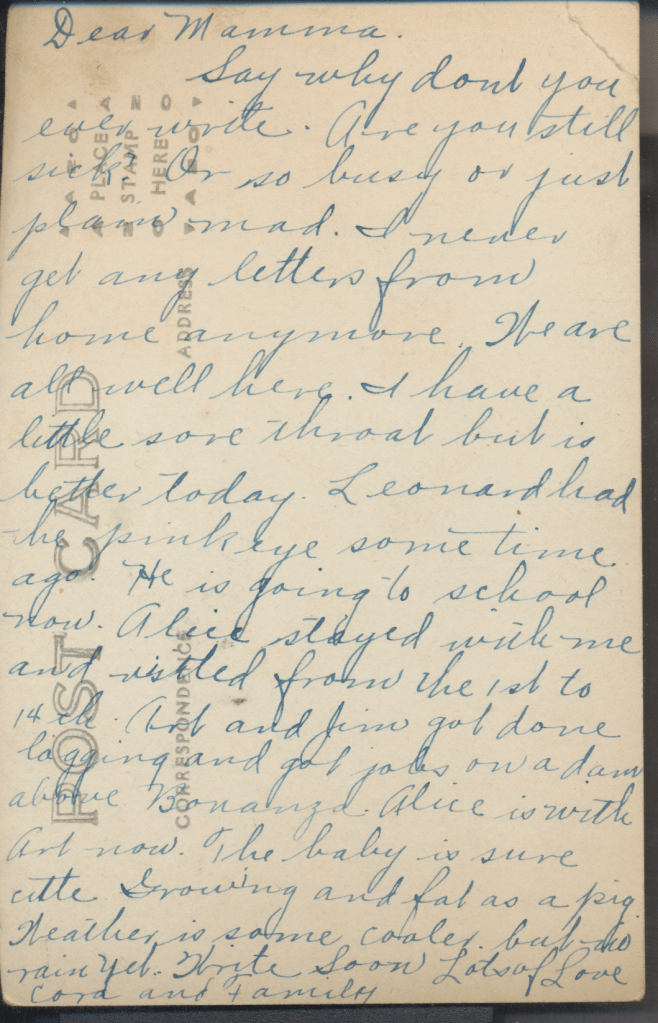 Dear Mamma.
Say why dont you
ever write. Are you still
sick? Or so busy or just
plain mad. I never
get any letters from
home anymore. We are
all well here. I have a
little sore throat but is
better today. Leonard had
the pink eye some time
ago. He is going to school
now. Alice stayed with me
and visited from the 1st to
14th. Art and Jim got done
logging and got jobs on a dam
above Bonanza. Alice is with
Art now. The baby is sure
cute Growing and fat as a pig.
Weather is some cooler but no
rain yet. Write Soon Lots of Love
Cora and Family
POST CARD
CORRESPONDENCE
ADDRESS
PLACE
STAMP
HERE
AZO